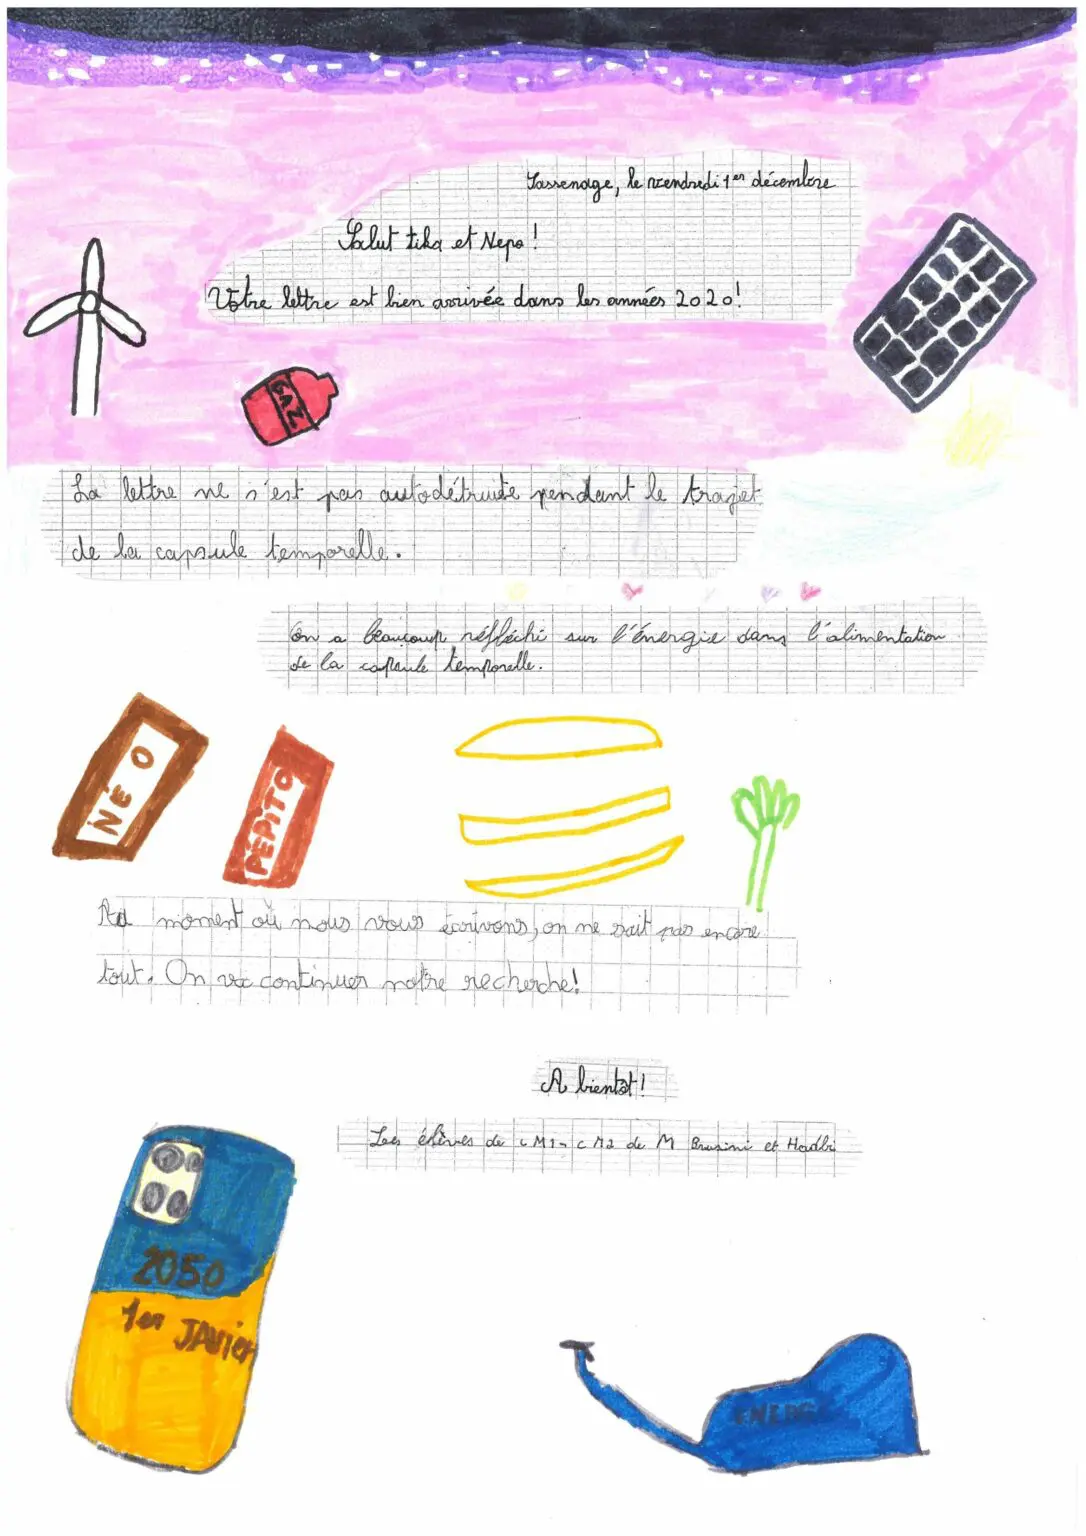 Sassenage, le vendredi 1er décembre
Salut tika et Nepo !
Votre lettre est bien arrivée dans les années 2020!
GAZ
La lettre ne s'est pas autodétruite pendant le trajet
de la capsule temporelle.
On a beaucoup réfléchi sur l'énergie dans l'alimentation
de la capsule temporelle.
NÉO
PÉPITO
Au moment où nous vous écrivons, on ne sait pas encore
tout. On va continuer notre recherche!
A bientôt!
Les élèves de CM1-CM2 de M Brusini et Hadbi
2050
1er JAVier
ENERG